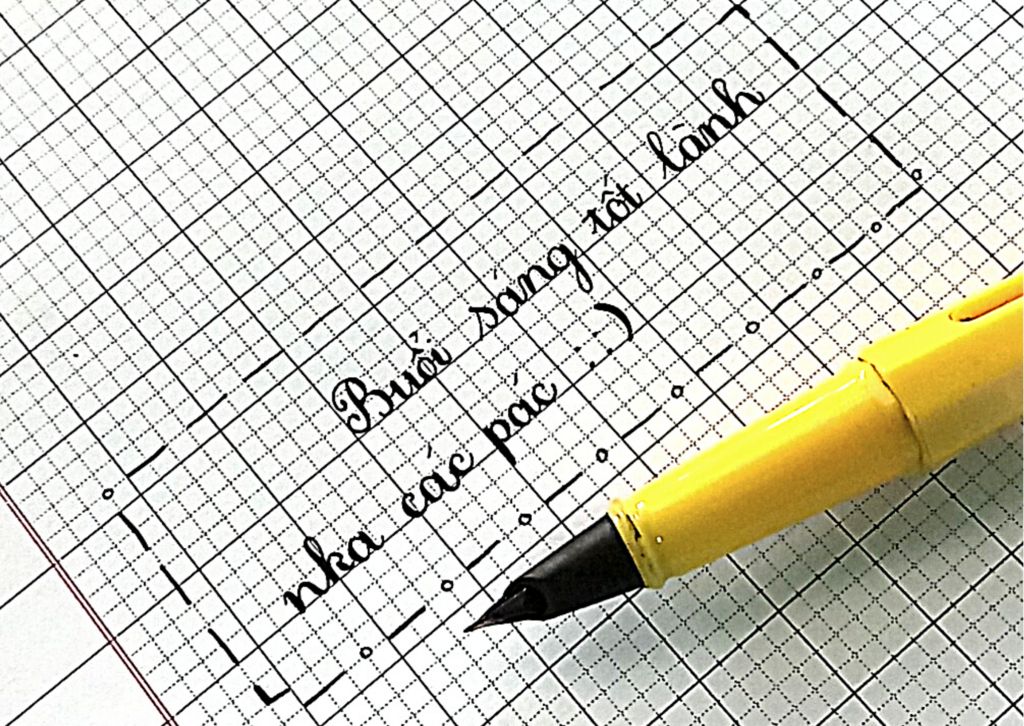 Buổi sáng tốt lành
nka các pác :)